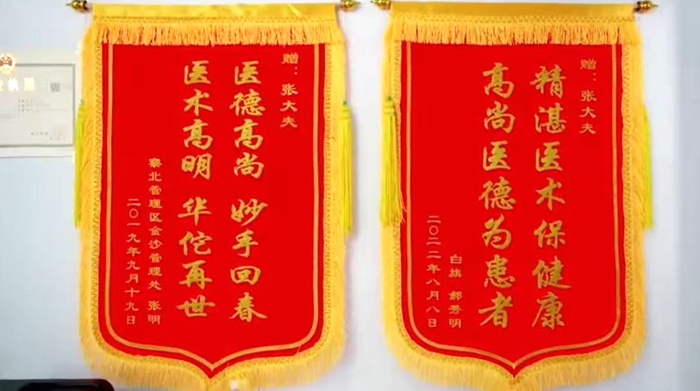 赠：张大夫
医德高尚 妙手回春
医术高明 华佗再世
察北管理区金沙管理处 张明
二〇一九年九月十九日
赠：张大夫
精湛医术保健康
高尚医德为患者
白旗 郝秀明
二〇二二年八月八日